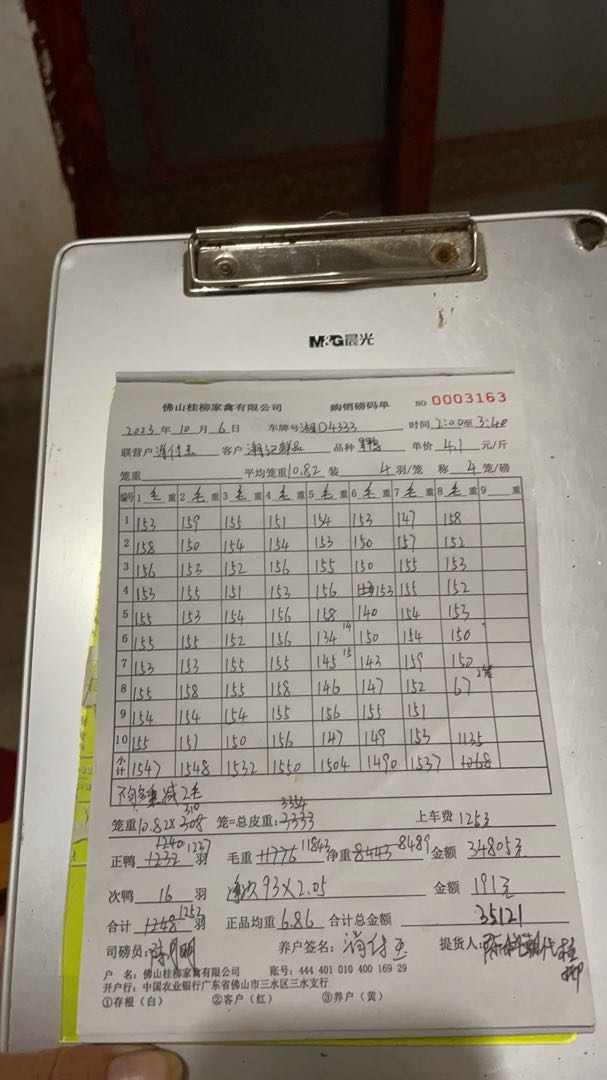 M&G晨光
佛山桂柳家禽有限公司 购销磅码单 NO 0003163
2023年10月6日 车牌号 湘D4333 时间2:00至3:40
联营户 客户 湘记鲜品 品种 单价4.1元/斤
笼重 平均笼重10.82 装4羽/笼 称4笼/磅
编号 1毛重 2毛重 3毛重 4毛重 5毛重 6毛重 7毛重 8毛重 9 重
1 153 159 155 151 154 153 147 158
2 158 150 154 154 153 150 157 152
3 156 153 152 156 155 150 155 153
4 153 155 151 153 156 153 155 152
5 155 153 154 156 158 140 154 153
6 155 155 152 156 134 14 150 154 150
7 153 153 155 155 145 15 143 159 150
8 155 158 155 158 146 147 152 67 2笼
9 154 154 154 155 156 155 151
10 155 157 150 156 147 149 153 1135
小计 1547 1548 1532 1550 1504 1490 1537 1268
减2毛
310 3354
笼重10.82×308 笼=总皮重:3333 上车费1253
1240 1237 11843 8489
正鸭1232羽 毛重11776 净重8443 金额34805元
次鸭16羽 93×2.05 金额191元
1253
合计1248羽 正品均重6.86 合计总金额35121
司磅员: 养户签名: 提货人:
户 名:佛山桂柳家禽有限公司 账号:444 401 010 400 169 29
开户行:中国农业银行广东省佛山市三水区三水支行
①存根(白) ②客户(红) ③养户(黄)